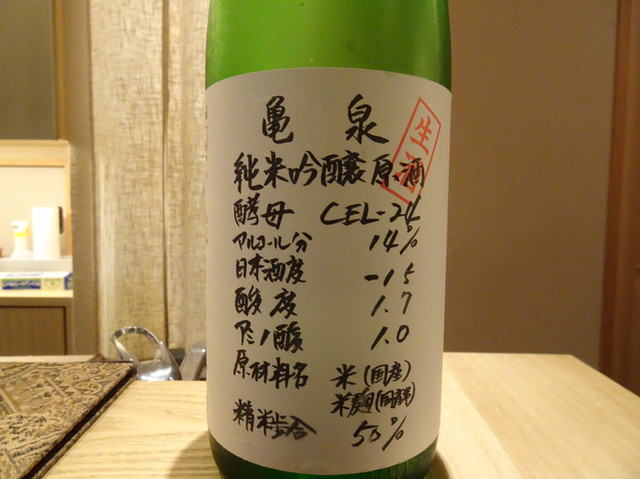 亀泉
生酒
純米吟醸原酒
酵母 CEL-24
アルコール分 14%
日本酒度 -15
酸度 1.7
アミノ酸 1.0
原材料名 米(国産)
米麹(国産米)
精米歩合 50%